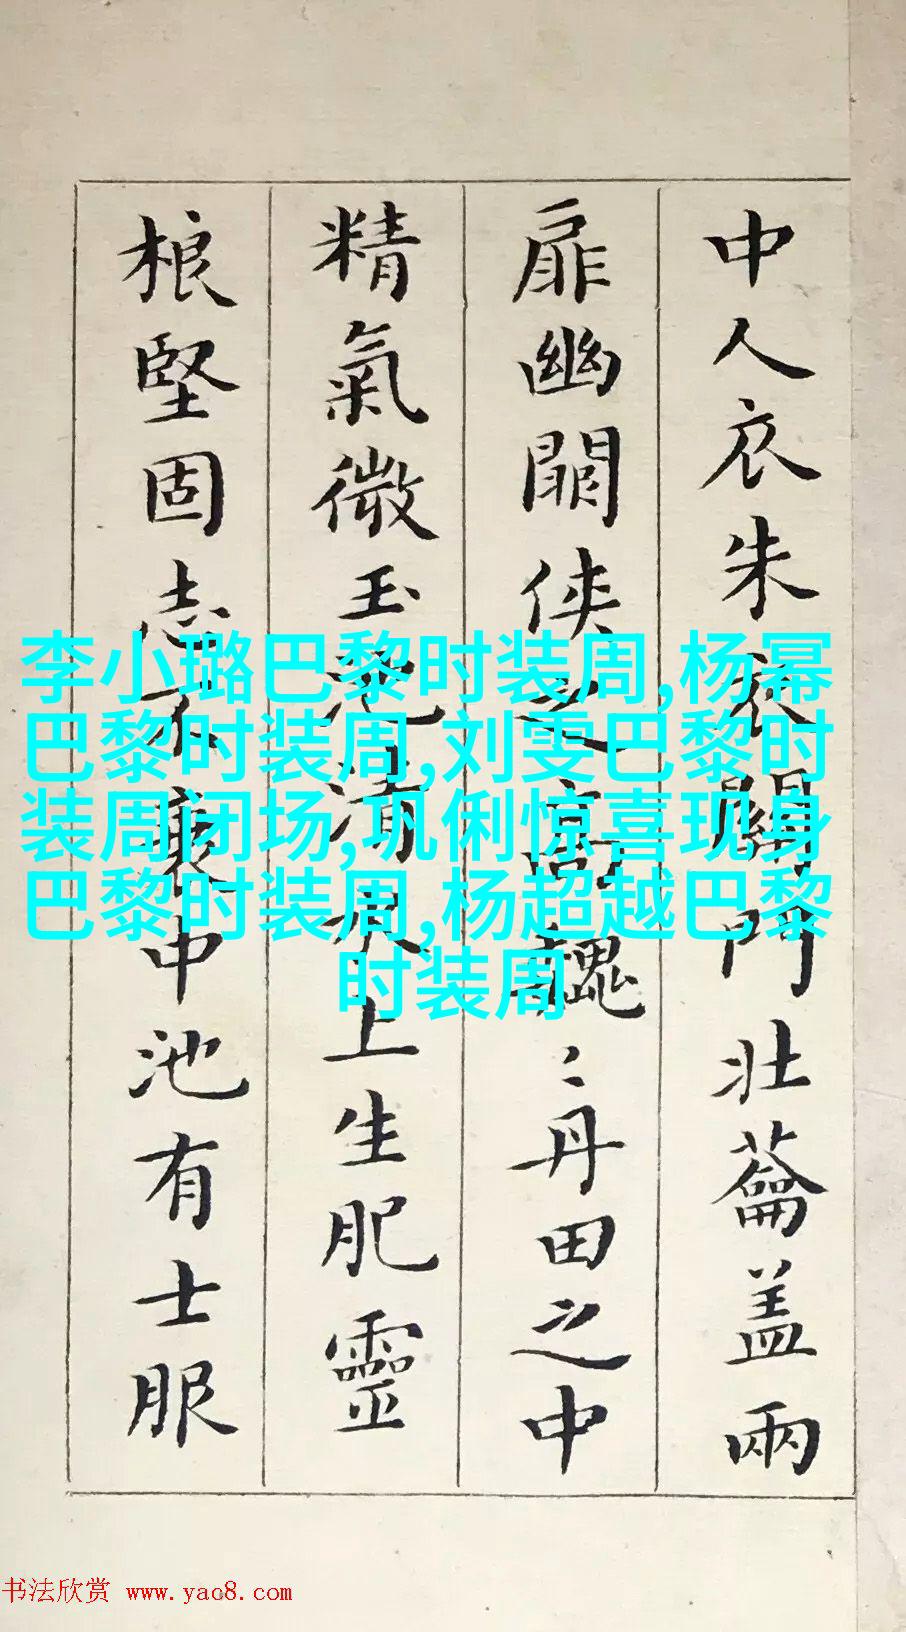 中人衣朱衣關門壯蘥盖兩
扉幽闕俠之高巍〻丹田之中
精氣微玉池清水上生肥靈
根堅固志不衰中池有士服
李小璐巴黎时装周,杨幂
巴黎时装周,刘雯巴黎时
装周闭场,巩俐惊喜现身
巴黎时装周,杨超越巴黎
时装周
书法欣赏 www.yac8.com